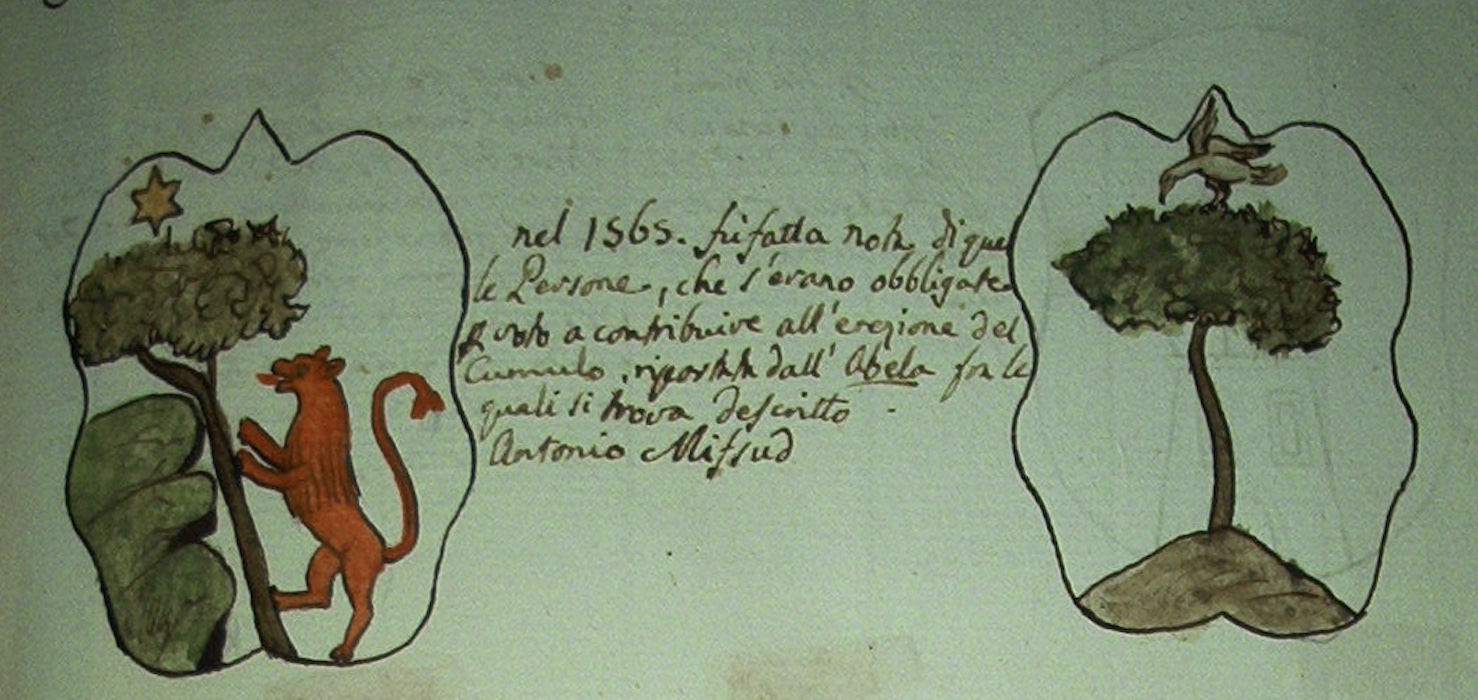 nel 1565. fù fatta nota di quel
le Persone, che s'erano obbligate
a contribuire all'erezione del
Cumulo, dall' Abela fra le
quali si trova descritto
Antonio Mifsud